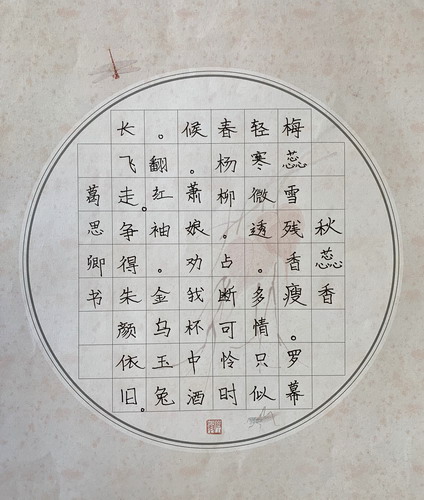 秋蕊香
梅蕊雪残香瘦。罗幕
轻寒微透。多情只似
春杨柳。占断可怜时
候。萧娘劝我杯中酒
。翻红袖。金乌玉兔
长飞走。争得朱颜依旧。
葛思卿书